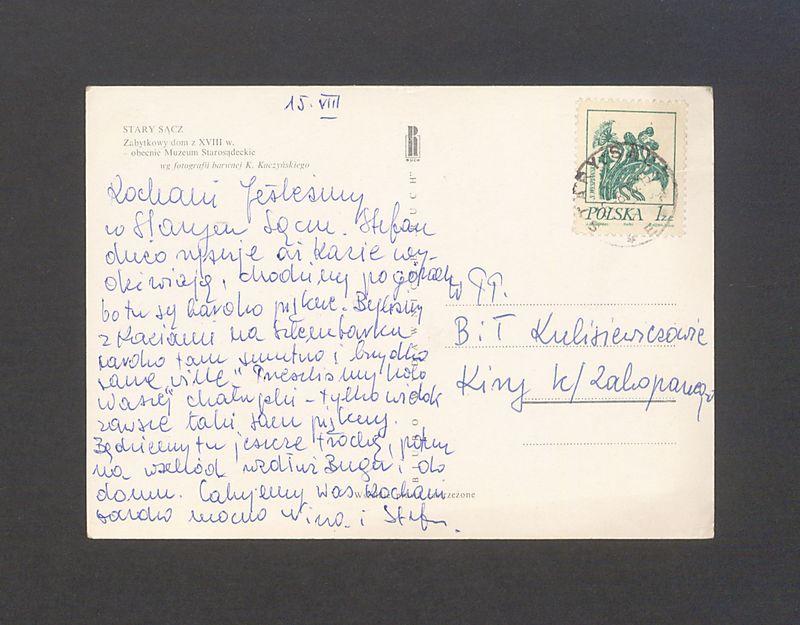 15. VIII
STARY SĄCZ
Zabytkowy dom z XVIII w.
– obecnie Muzeum Starosądeckie
wg fotografii barwnej K. Kaczyńskiego
RUCH
POLSKA 1 ZŁ
Kochani Jesteśmy
w Starym Sączu. Stefan
dużo rysuje
chodzimy po górach
bo tu są bardzo piękne. Byliśmy
z Kaziami na
bardzo tam smutno i brzydko
same wille" Przeszliśmy koło
Waszej chałupki – tylko widok
zawsze taki sam piękny.
Będziemy tu jeszcze trochę, potem
na wschód wzdłuż Bugu i do
domu. Całujemy Was kochani
bardzo mocno i Stefan.
W PP.
B i T Kulisiewiczowie
Kiry k/Zakopanego